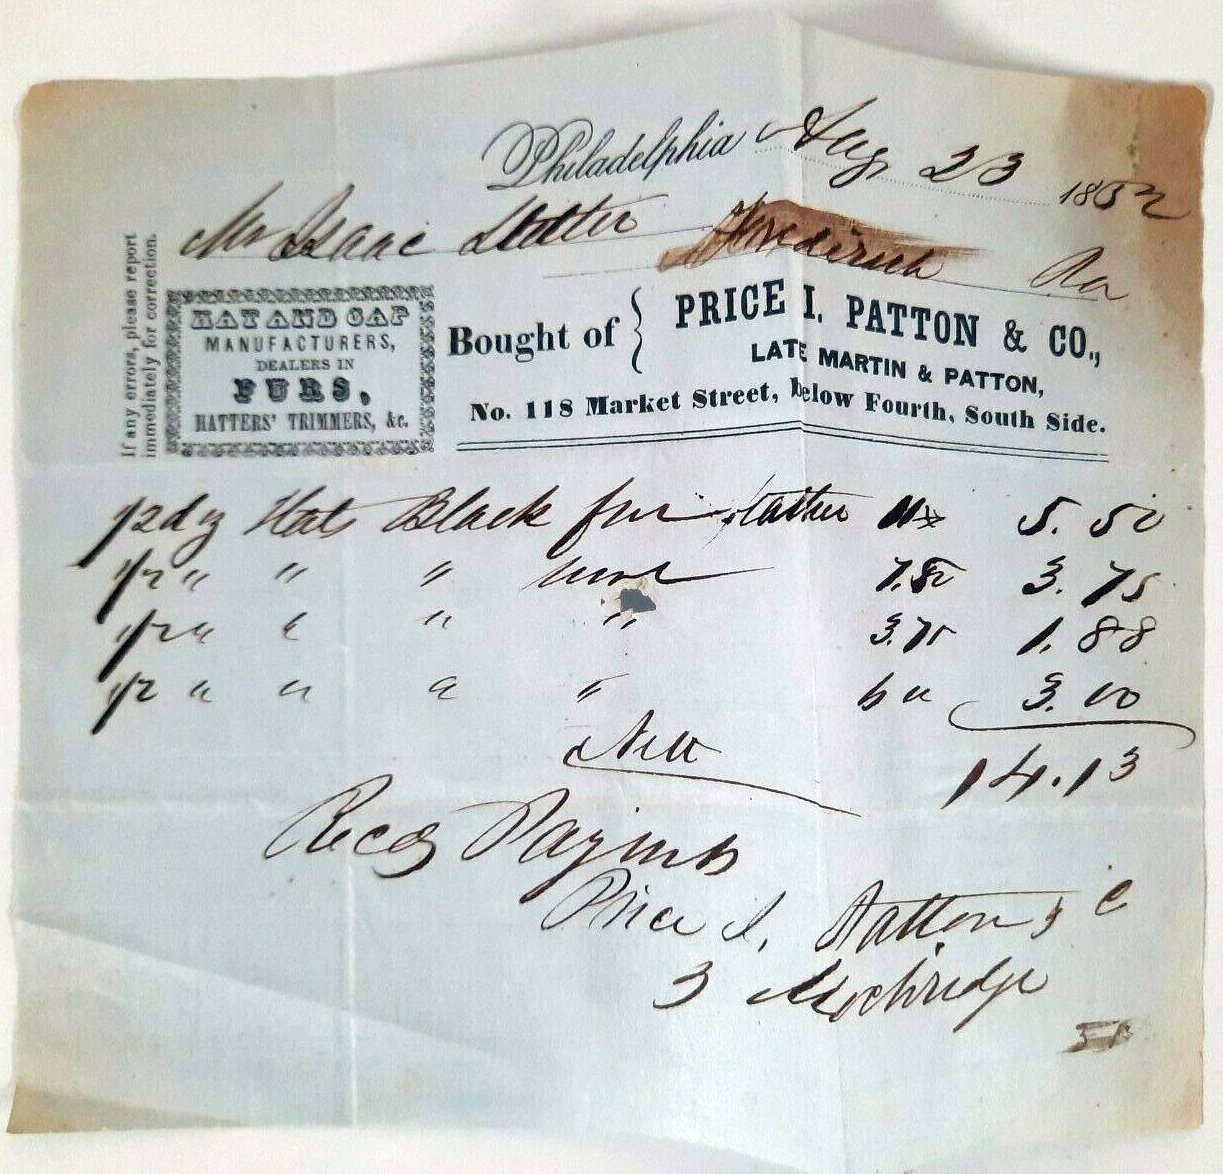 Philadelphia Aug 23 1852
Mr Isaac
If any errors, please report
immediately for correction.
HAT AND CAP
MANUFACTURERS,
DEALERS IN
FURS,
HATTERS' TRIMMERS, &c.
Bought of { PRICE I. PATTON & CO.,
LATE MARTIN & PATTON,
No. 118 Market Street, below Fourth, South Side.
1/2 dz Hats Black fur 5.50
1/2 " " " wool 7.50 3.75
1/2 " " " " 3.75 1.88
1/2 " " " " 6 " 3.00
Nett 14.13
Recd Payment
Price I. Patton & C